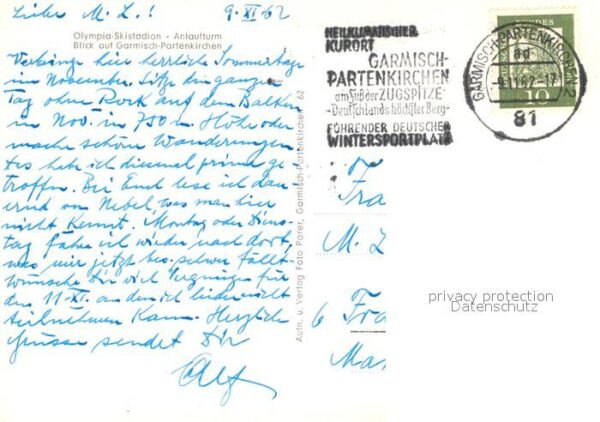 Lieber M. L.! 9. XI 62
Olympia-Skistadion - Anlaufturm
Blick auf Garmisch-Partenkirchen
Verbringe hier herrliche Sommertage
im November. Sitze den ganzen
Tag ohne Rock auf dem Balkon
im Nov. in 750 m Höhe oder
mache schöne Wanderungen.
habe ich diesmal prima ge-
troffen. Bei Euch lese ich dau-
ernd von Nebel, was man hier
nicht kennt. Montag oder Diens-
tag fahre ich wieder nach dort,
was mir jetzt bes. schwer fällt.
wünsche Dir viel Vergnügen für
den 11 XI. an dem ich leider nicht
teilnehmen kann. Herzliche
Grüsse sendet Dir
Alf
Aufn. u. Verlag Foto Porer, Garmisch-Partenkirchen 62
HEILKLIMATISCHER
KURORT
GARMISCH-
PARTENKIRCHEN
am Fuß der ZUGSPITZE
-Deutschlands höchster Berg-
FÜHRENDER DEUTSCHER
WINTERSPORTPLATZ
GARMISCH-PARTENKIRCHEN 2
ad
-9.11.62-17
81
10
Fra
M. L
6 Fra
Ma
privacy protection
Datenschutz